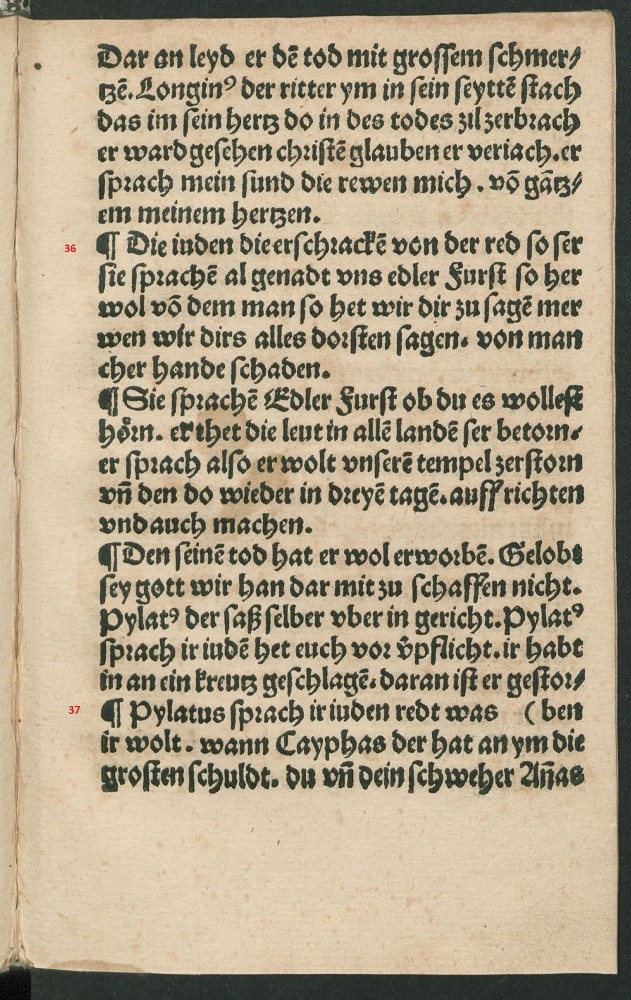 Dar an leyd er dē tod mit grossem schmer/
tzē. Longin⁹ der ritter ym in sein seyttē stach
das im sein hertz do in des todes zil zerbrach
er ward gesehen christē glauben er veriach. er
sprach mein sund die rewen mich . vō gātz/
em meinem hertzen.
36 ¶ Die iuden die erschrackē von der red so ser
sie sprachē al genadt vns edler Furst so her
wol vō dem man so het wir dir zu sagē mer
wen wir dirs alles dorsten sagen. von man
cher hande schaden.
¶ Sie sprachē Edler Furst ob du es wollest
hörn. er thet die leut in allē landē ser betorn.
er sprach also er wolt vnserē tempel zerstorn
vn̄ den do wieder in dreyē tagē. auff richten
vnd auch machen.
¶ Den seinē tod hat er wol erworbē. Gelobt
sey gott wir han dar mit zu schaffen nicht.
Pylat⁹ der saß selber vber in gericht. Pylat⁹
sprach ir iudē het euch vor v̄pflicht. ir habt
in an ein kreutz geschlagē. daran ist er gestor/
37 ¶ Pylatus sprach ir iuden redt was (ben
ir wolt. wann Cayphas der hat an ym die
grosten schuldt. du vn̄ dein schweher An̄as